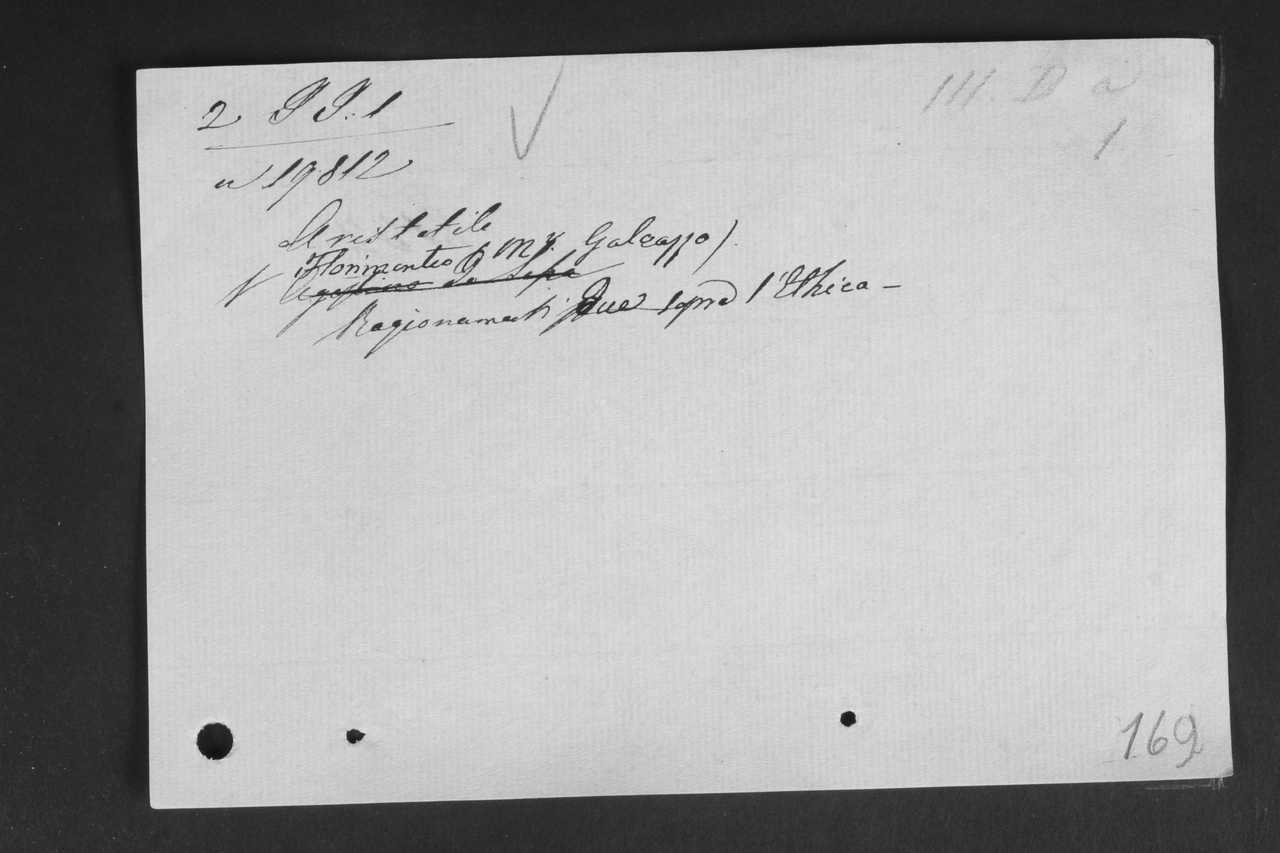 2 P P. 1
III. D a
1
n 19812
Aristotile
Florimonteo (Mgr. Galeazzo)
Agostino da Sessa
Ragionamenti Due sopra l'Ethica -
169